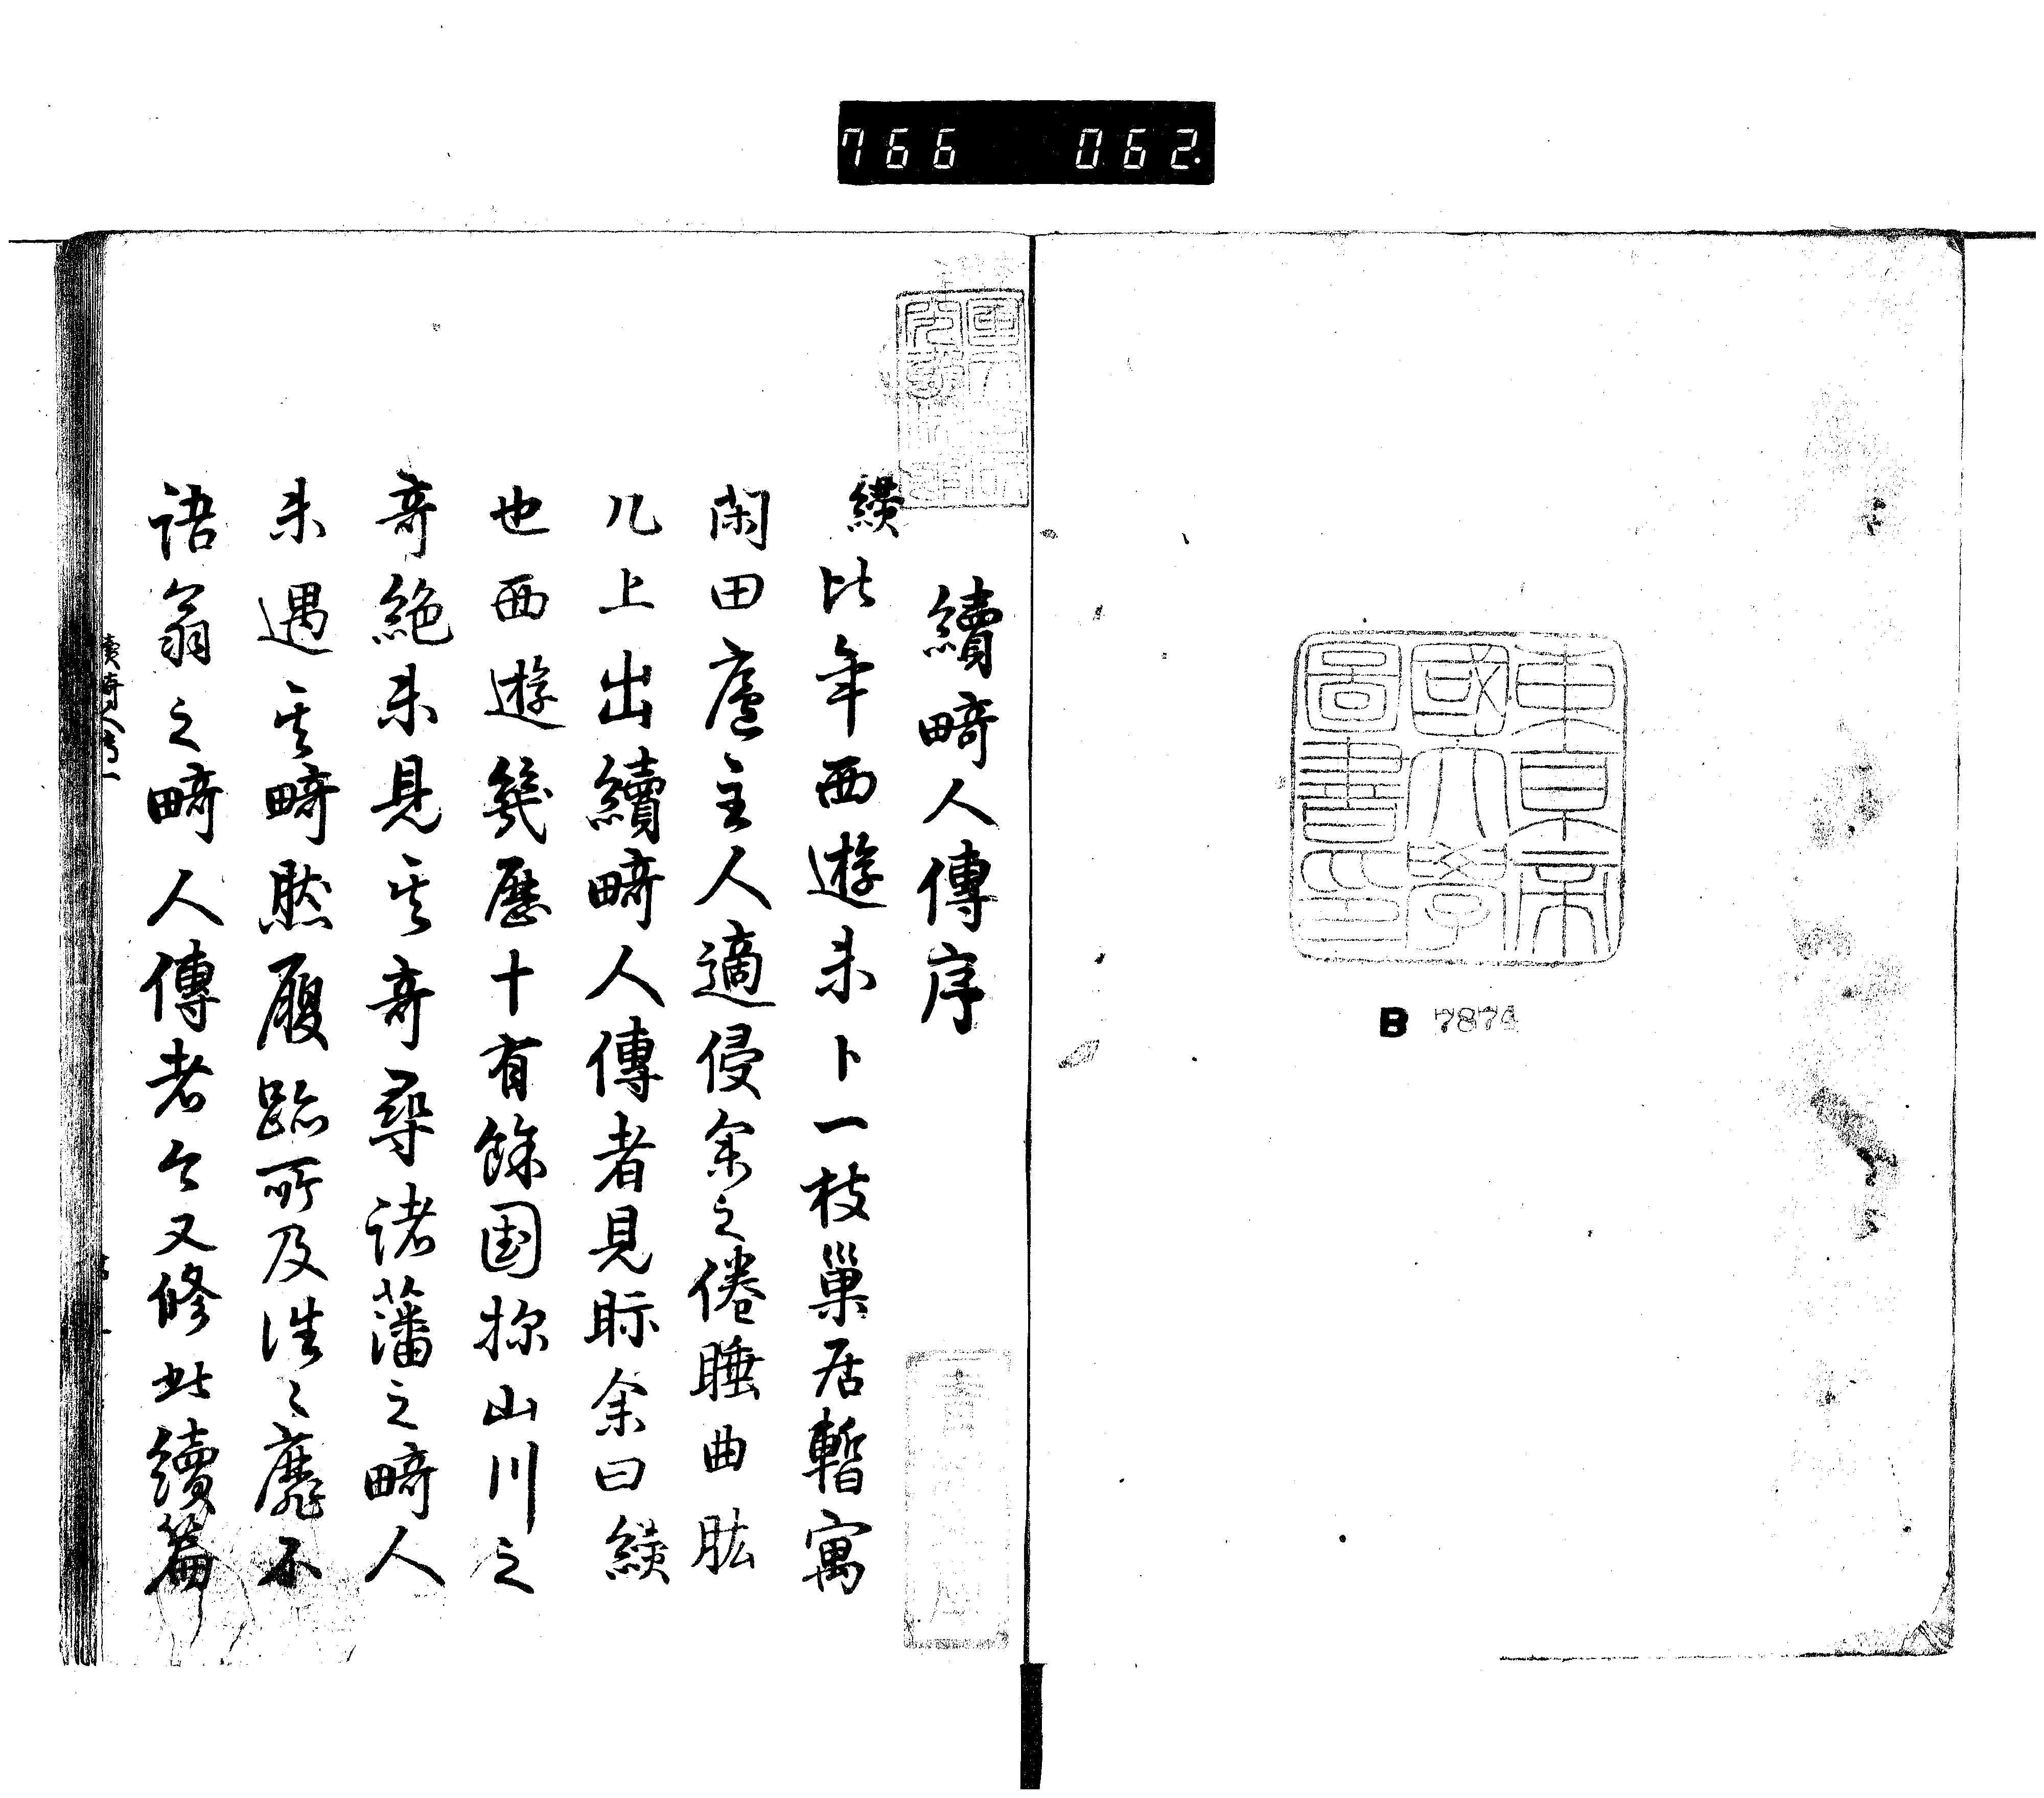 766 062.
東京帝
國大學
圖書印
B 7874
續畸人傳序
績比年西遊未卜一枝巢居暫寓
閑田廬主人適侵余之倦睡曲肱
几上出續畸人傳者見眎余曰績
也西遊幾歷十有餘国探山川之
奇絶未見其奇尋諸藩之畸人
未遇其畸然履跡所及往々靡不
語翁之畸人傳者今又修此續篇